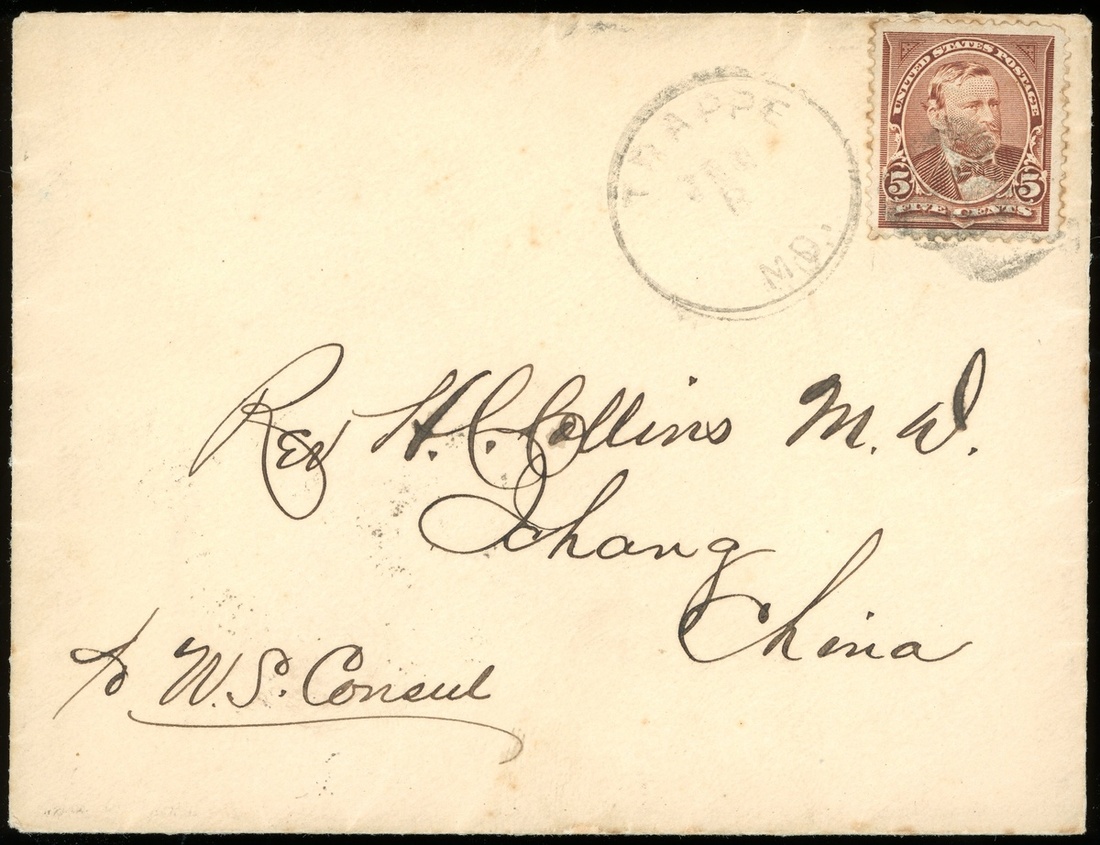 UNITED STATES POSTAGE
5 5
FIVE CENTS
TRAPPE
MD.
Rev H. C. Collins M. D.
Ichang
China
U. S. Consul